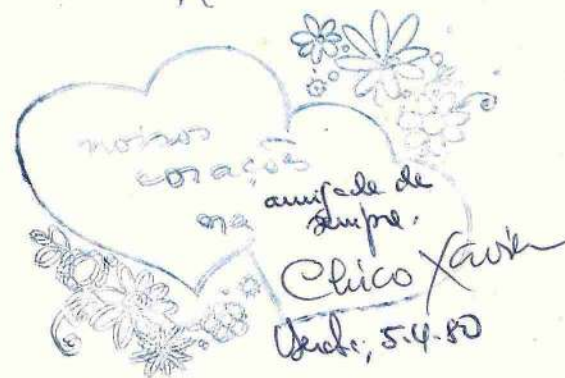 nossos
corações
na
amizade de
sempre.
Chico Xavier
5.4.80